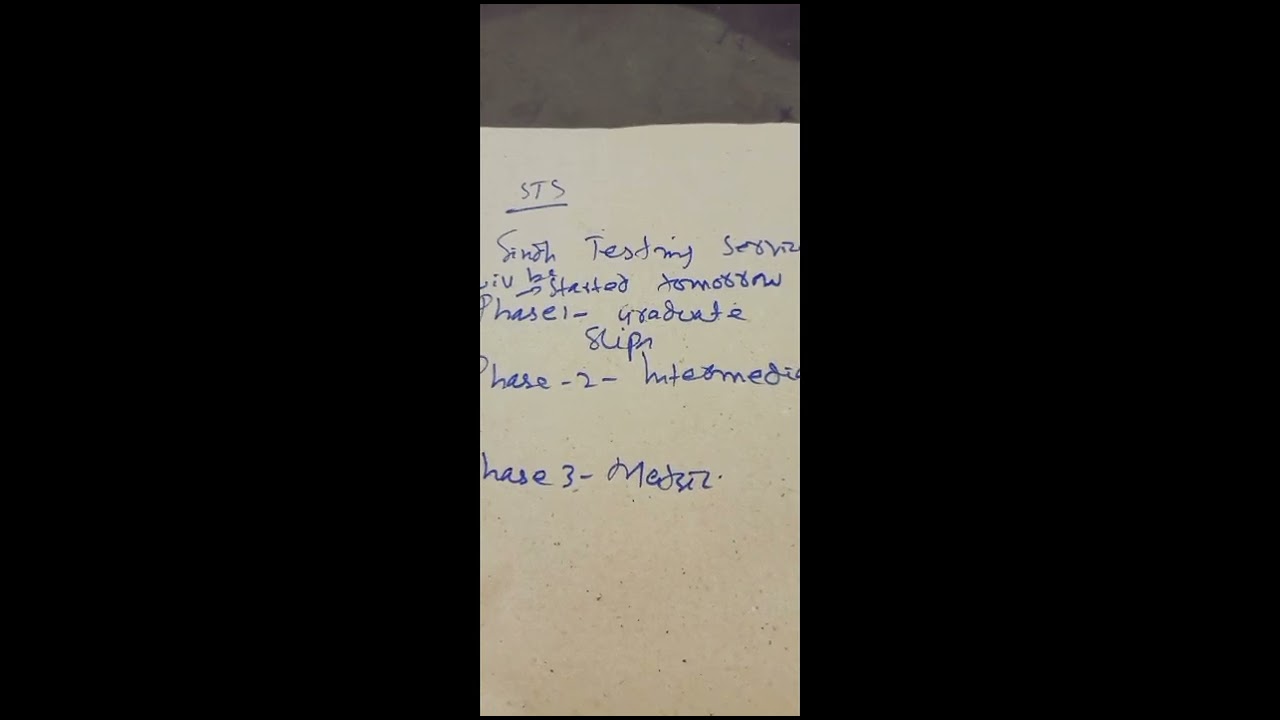 STS
Sindh Testing Servic
will be
→ started tomorrow
Phase 1 - Graduate
Slips
Phase - 2 - Intermedia
hase 3 - Metric.